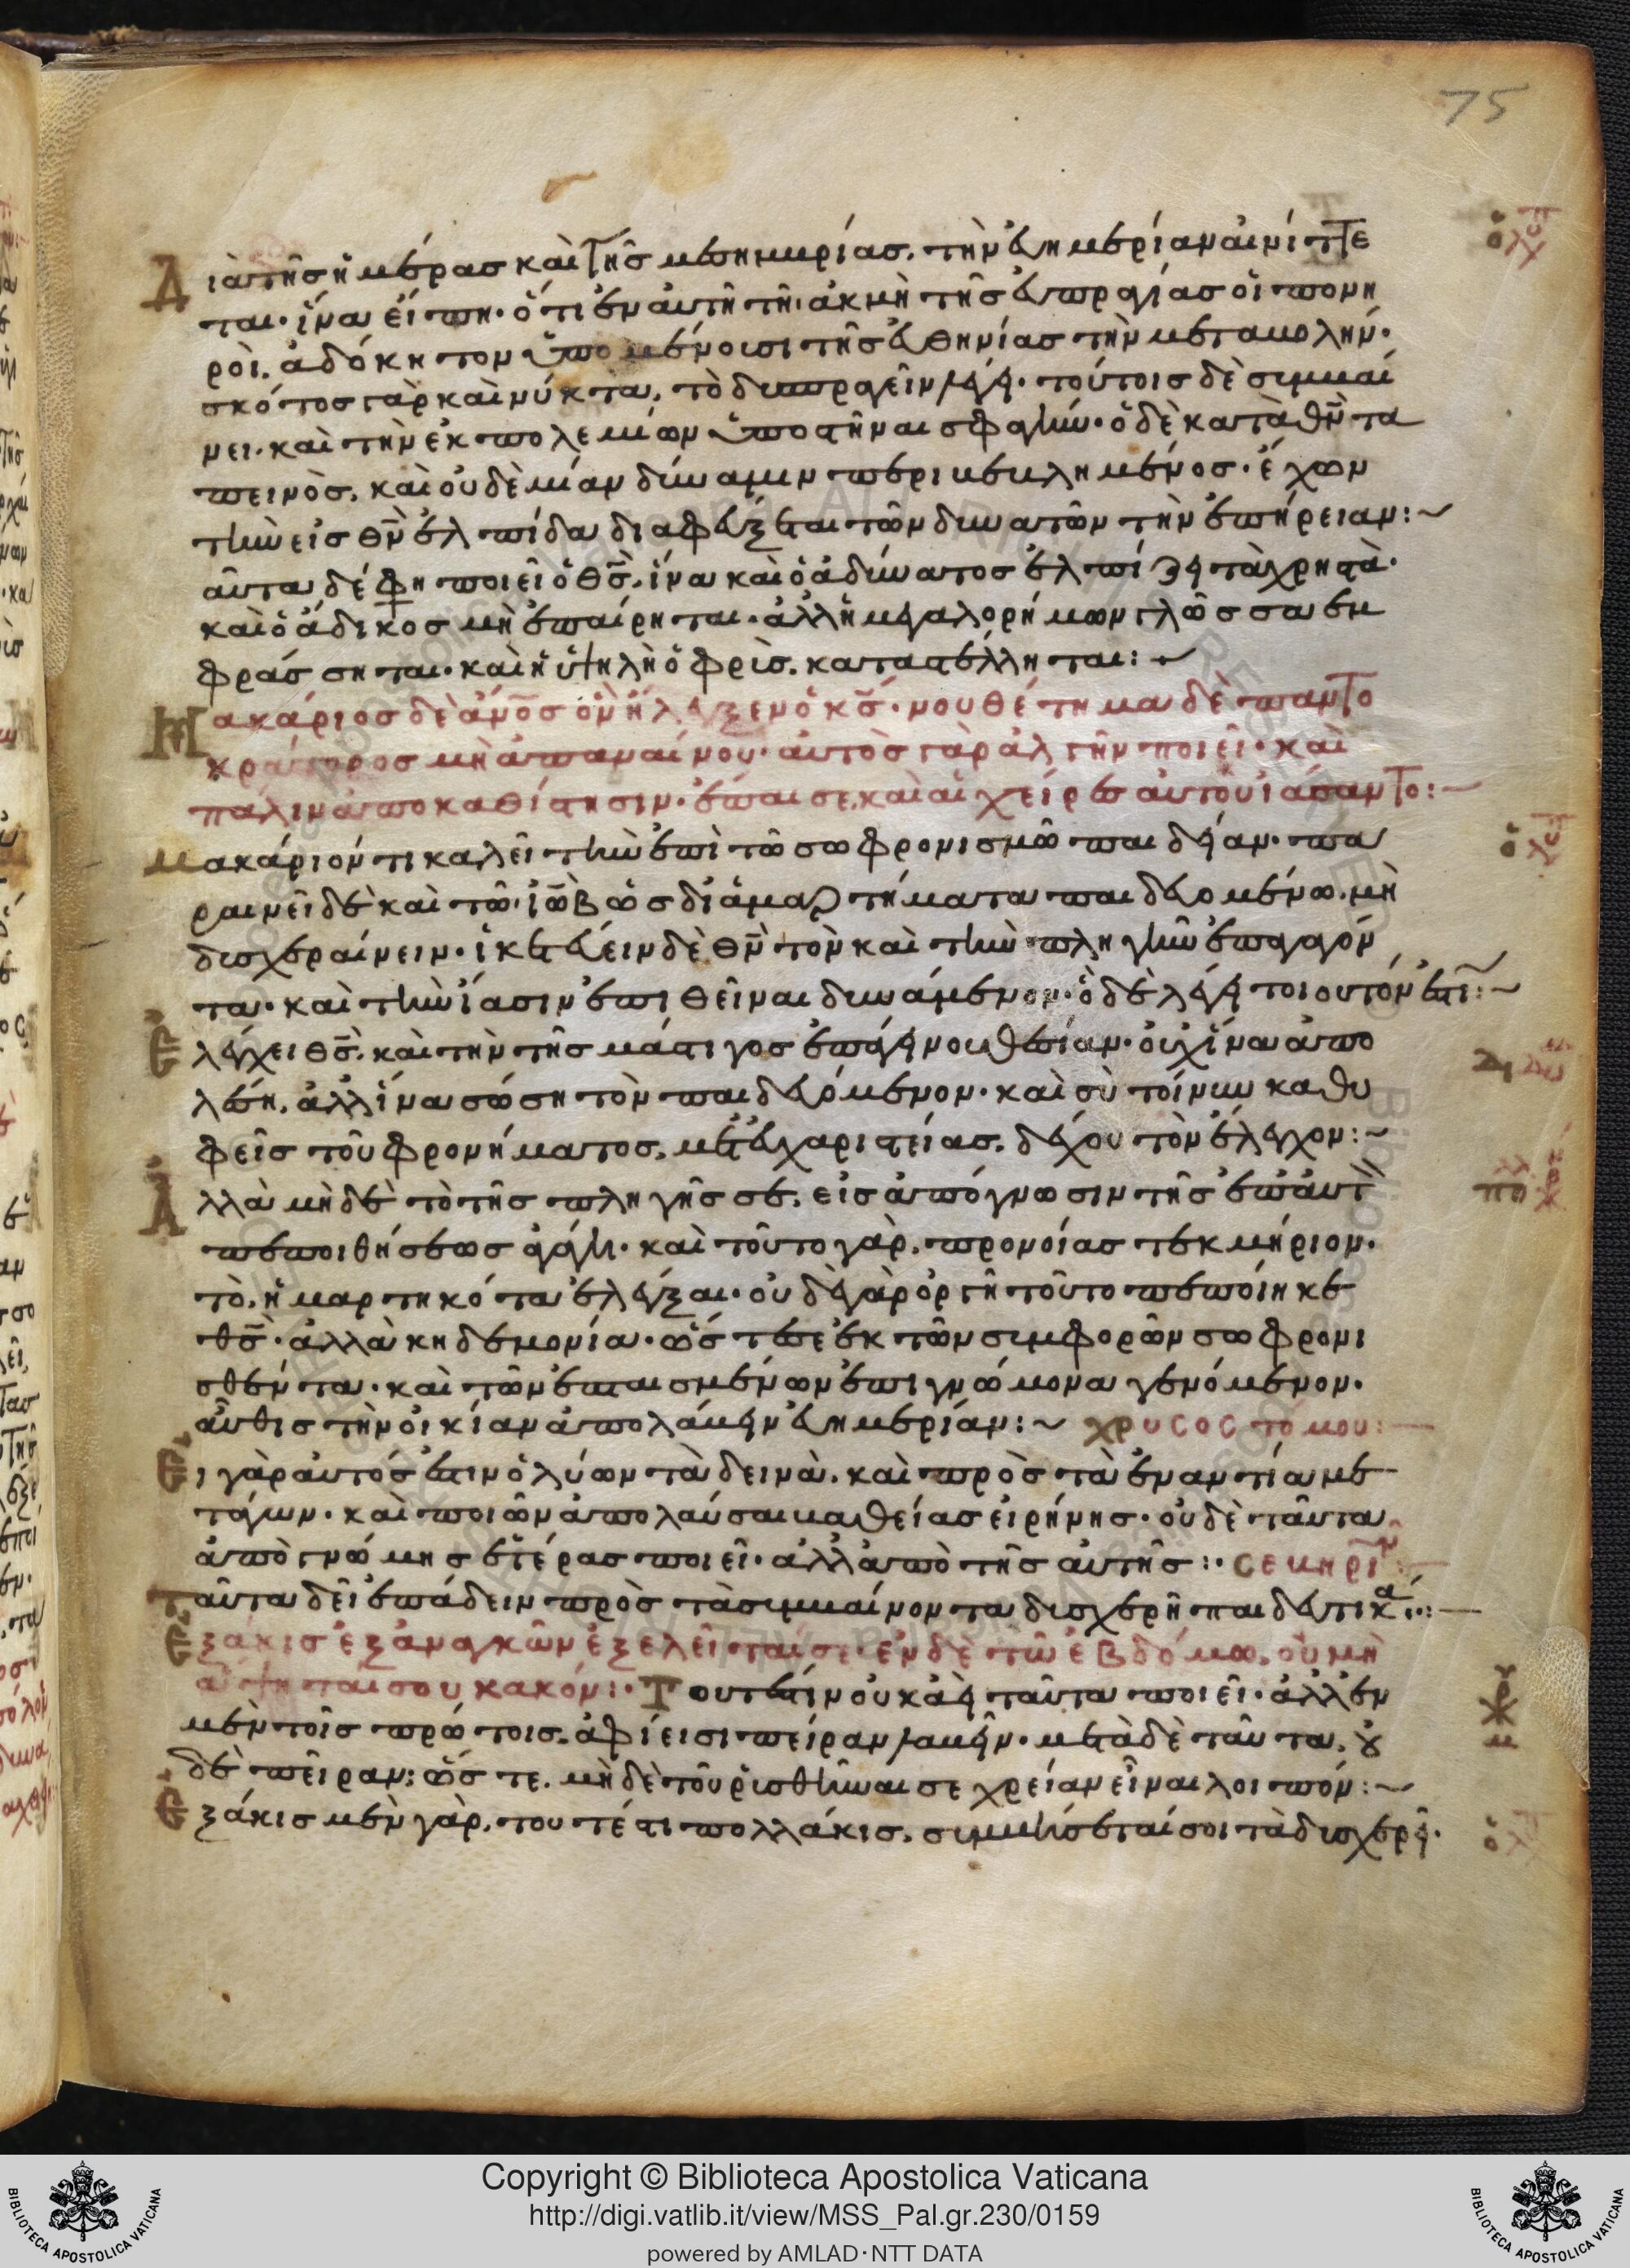 75
Διὰ τῆς ἡμέρας καὶ τῆς μεσημβρίας, τὴν εὐημερίαν αἰνίττε
ται· ἵνα εἴπη· ὅτι ἐν αὐτῆ τῆ ἀκμῆ τῆς εὐπραγίας οἱ πονη
ροὶ, ἀδόκητον ὑπομένουσι τῆς εὐθηνίας τὴν μεταβολήν·
σκότος γὰρ καὶ νύκτα, τὸ δυσπραγεῖν λέγει· τούτοις δὲ συμβαί
νει καὶ τὴν ἐκ πολεμίων ὑποστῆναι σφαγήν· ὁ δὲ κατὰ θν τα
πεινὸς, καὶ οὐδεμίαν δύναμιν περιβεβλημένος· ἔχων
τὴν εἰς θν ἐλπίδα διαφεύξεται τῶν δυνατῶν τὴν ἐπήρειαν:~
ταῦτα δέ φη ποιεῖ ὁ θς, ἵνα καὶ ὁ ἀδύνατος ἐλπίζη τὰ χρηστὰ·
καὶ ὁ ἄδικος μὴ ἐπαίρηται· ἀλλ' ἡ μεγαλορήμων γλῶσσα ἐμ
φράσσηται· καὶ ἡ ὑψηλὴ ὀφρὺς, καταστέλληται:~
Μακάριος δὲ ἀνος ὃν ἤλεγξεν ὁ κς· νουθέτημα δὲ παντο
κράτορος μὴ ἀπαναίνου· αὐτὸς γὰρ ἀλγεῖν ποιεῖ· καὶ
πάλιν ἀποκαθίστησιν· ἔπαισε, καὶ αἱ χεῖρες αὐτοῦ ἰάσαντο:
Μακάριόν τι καλεῖ τὴν ἐπὶ τῶ σωφρονισμῶ παιδείαν· πα
ραινεῖ δὲ καὶ τῶ ἰὼβ ὡς δι' ἁμαρτήματα παιδευομένω, μὴ
δυσχεραίνειν· ἱκετεύειν δὲ θν τὸν καὶ τὴν πληγὴν ἐπαγαγόν
τα· καὶ τὴν ἴασιν ἐπιθεῖναι δυνάμενον· ὃ δὲ λέγει τοιοῦτόν ἐστι:~
Ἐλέγχει θς, καὶ τὴν τῆς μάστιγος ἐπάγει νουθεσίαν· οὐχ ἵνα ἀπο
λέση, ἀλλ' ἵνα σώση τὸν παιδευόμενον· καὶ σὺ τοίνυν καθυ
φεὶς τοῦ φρονήματος, μετ' εὐχαριστίας, δέχου τὸν ἔλεγχον:~
Ἀλλὰ μὴ δὲ τὸ τῆς πληγῆς σε, εἰς ἀπόγνωσιν τῆς ἐπ' αὐτ
πεποιθήσεως ἀγάγη· καὶ τοῦτο γὰρ, προνοίας τεκμήριον·
τὸ, ἡμαρτηκότα ἐλέγξαι· οὐδὲ γὰρ ὀργῆ τοῦτο πεποίηκε
θς· ἀλλὰ κηδεμονία· ὥς τέ σε ἐκ τῶν συμφορῶν σωφρονι
σθέντα· καὶ τῶν ἐπταισμένων ἐπιγνώμονα γενόμενον·
αὖθις τὴν οἰκίαν ἀπολαβεῖν εὐημερίαν:~ χρυσοστόμου:
Εἰ γὰρ αὐτός ἐστιν ὁ λύων τὰ δεινὰ, καὶ πρὸς τὰ ἐναντία με
τάγων· καὶ ποιῶν ἀπολαῦσαι βαθείας εἰρήνης· οὐδὲ ταῦτα
ἀπὸ γνώμης ἑτέρας ποιεῖ· ἀλλ' ἀπὸ τῆς αὐτῆς:· σεκηρι
ταῦτα δεῖ ἐπάδειν πρὸς τὰ συμβαίνοντα δυσχερῆ παιδευτικά:
Ἑξάκις ἐξ ἀναγκῶν ἐξελεῖταί σε· ἐν δὲ τῶ ἑβδόμω, οὐ μὴ
ἅψηταί σου κακόν:· Τουτέστιν οὐκ ἀεὶ ταῦτα ποιεῖ· ἀλλ' ἐν
μὲν τοῖς πρώτοις, ἀφίεισι πεῖραν λαβεῖν· μετὰ δὲ ταῦτα, οὐ
δὲ πεῖραν: ὥς τε, μηδὲ τοῦ ῥυσθῆναί σε χρείαν εἶναι λοιπόν:~
Ἑξάκις μὲν γὰρ, τουτέστι πολλάκις, συμβήσεταί σοι τὰ δυσχερῆ·
Copyright © Biblioteca Apostolica Vaticana
http://digi.vatlib.it/view/MSS_Pal.gr.230/0159
powered by AMLAD·NTT DATA
BIBLIOTECA APOSTOLICA VATICANA
BIBLIOTECA APOSTOLICA VATICANA